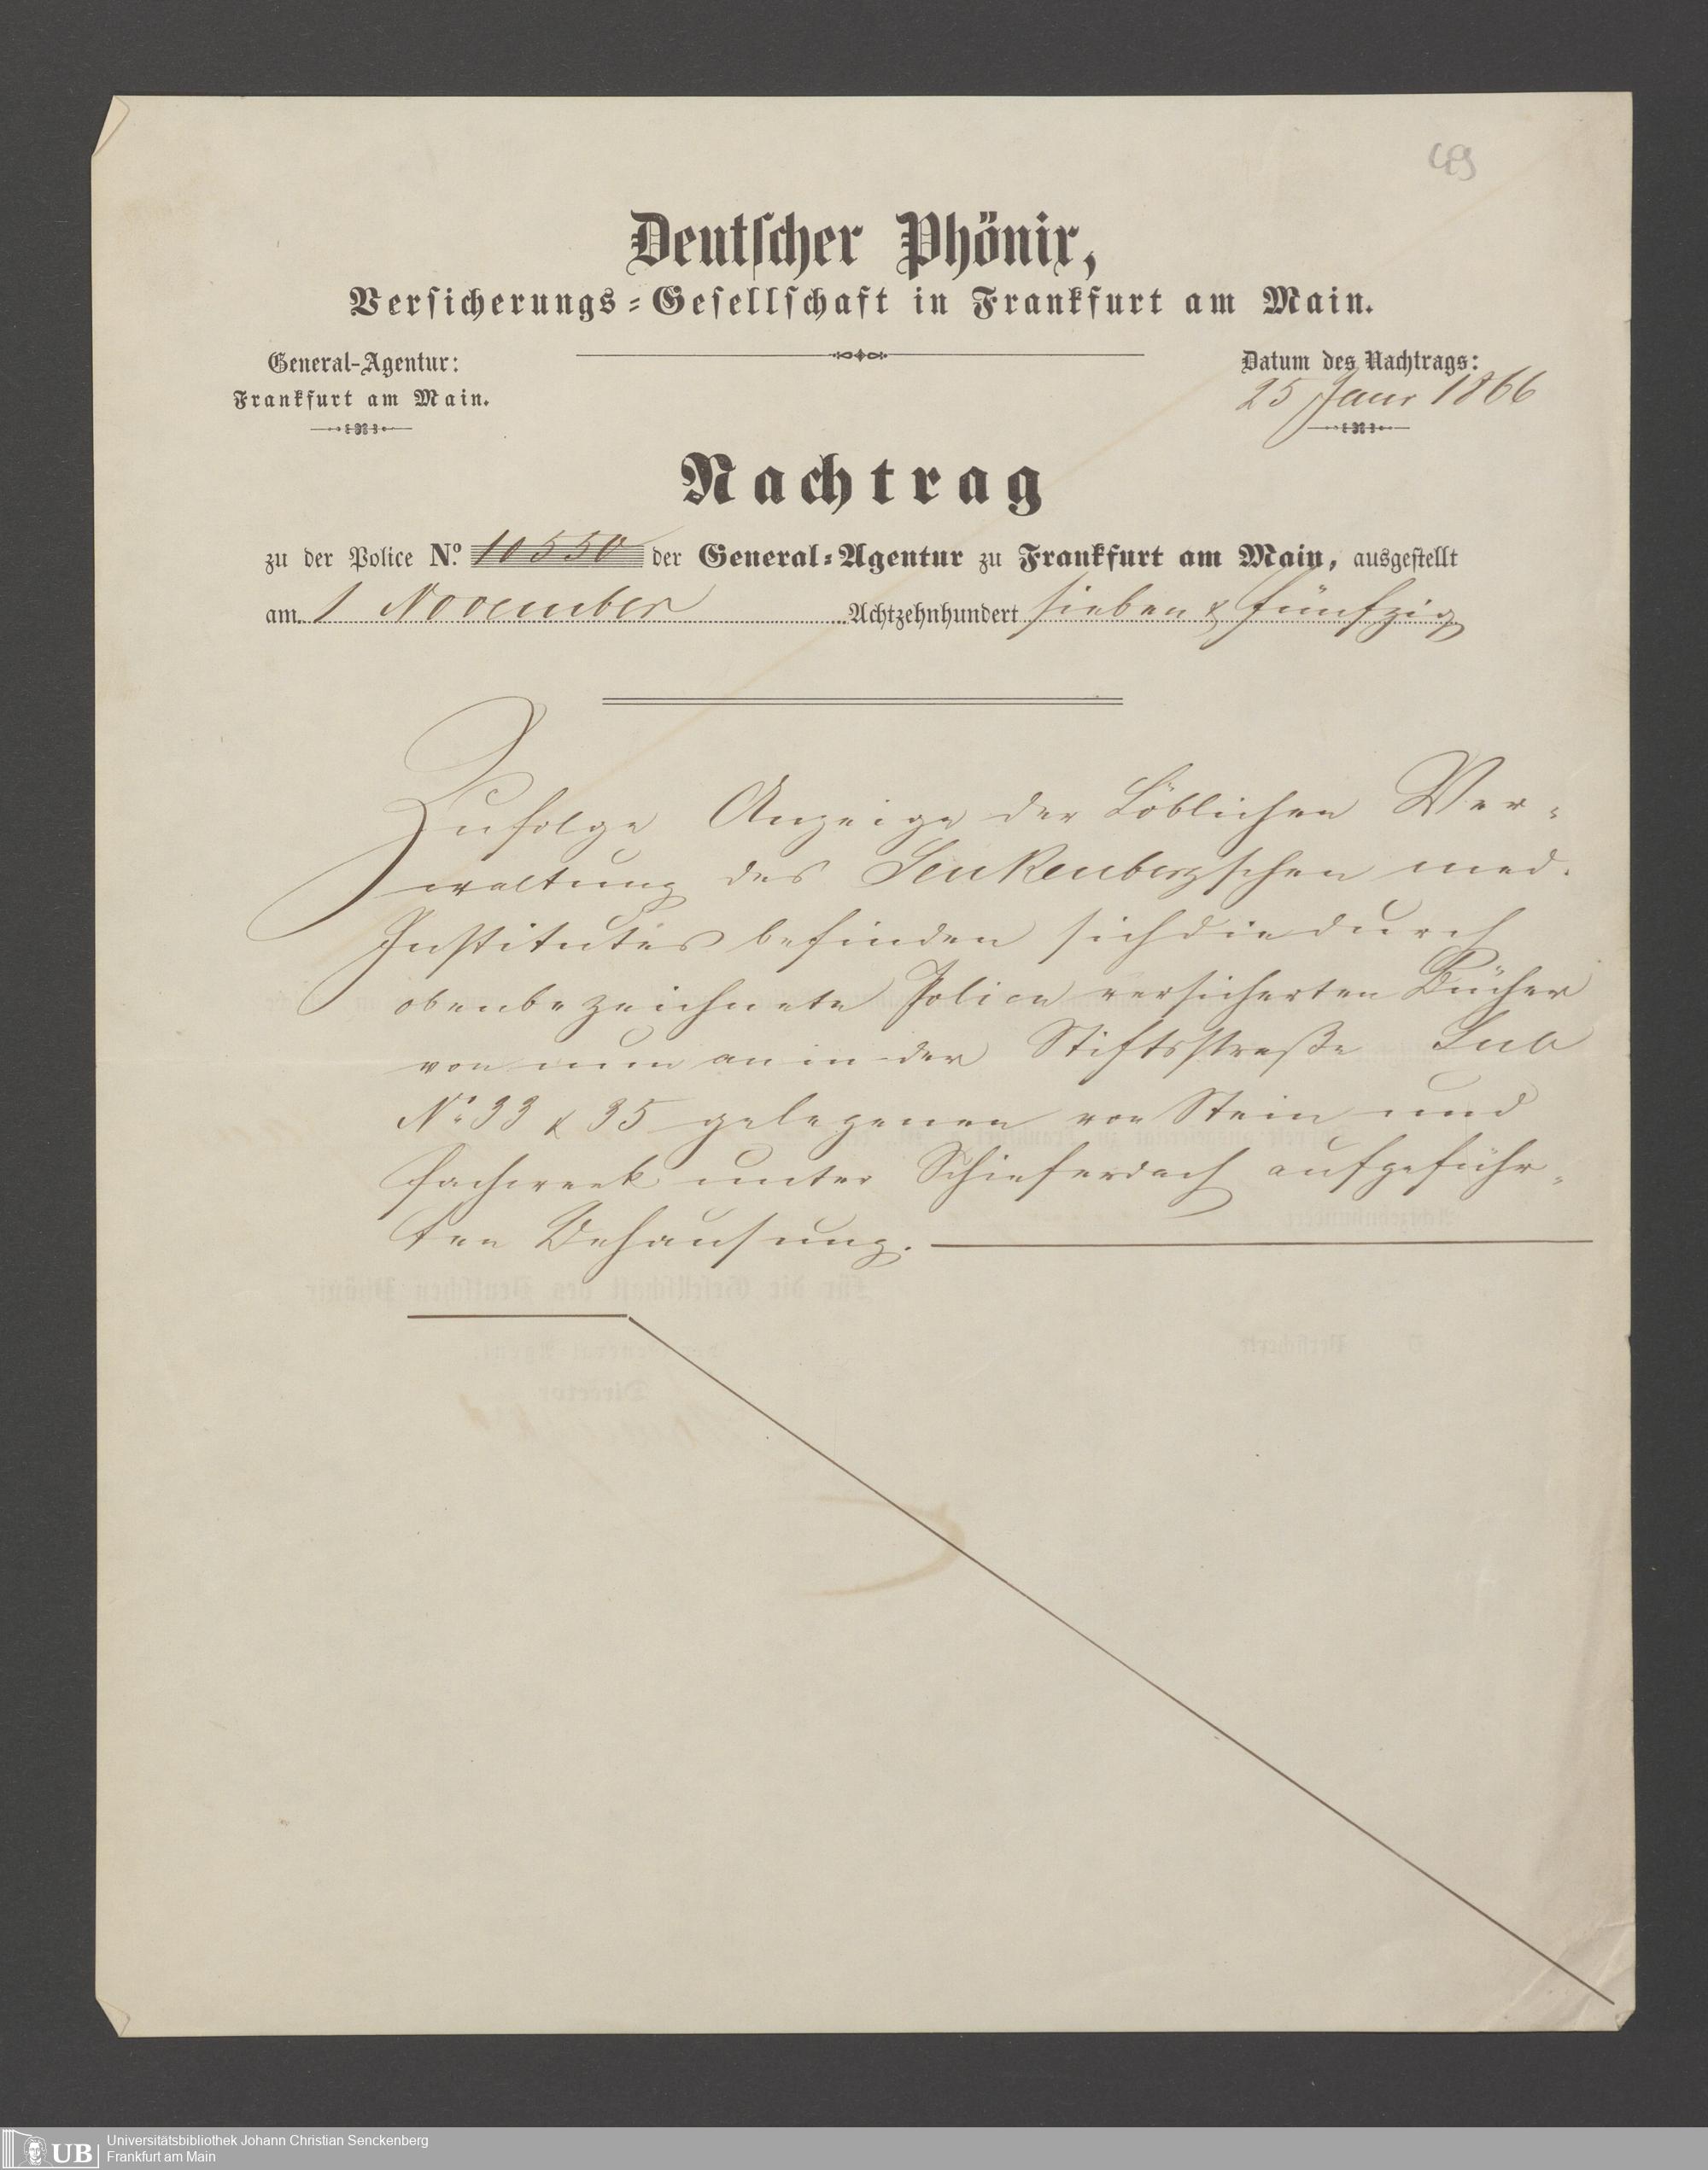 49
Deutscher Phönix,
Versicherungs-Gesellschaft in Frankfurt am Main.
General-Agentur:
Frankfurt am Main.
Datum des Nachtrags:
25 Janr 1866
Nachtrag
zu der Police No. 10550 der General-Agentur zu Frankfurt am Main, ausgestellt
am 1 November Achtzehnhundert sieben & fünfzig
Zufolge Anzeige der Löblichen Ver-
waltung des Senkenbergschen med.
Institutes befinden sich die durch
obenbezeichnete Police versicherten Bücher
von nun an in der Stiftsstraße Sub
No. 33 & 35 gelegenen von Stein und
Fachwerk unter Schieferdach aufgeführ-
ten Behausung.
UB
Universitätsbibliothek Johann Christian Senckenberg
Frankfurt am Main